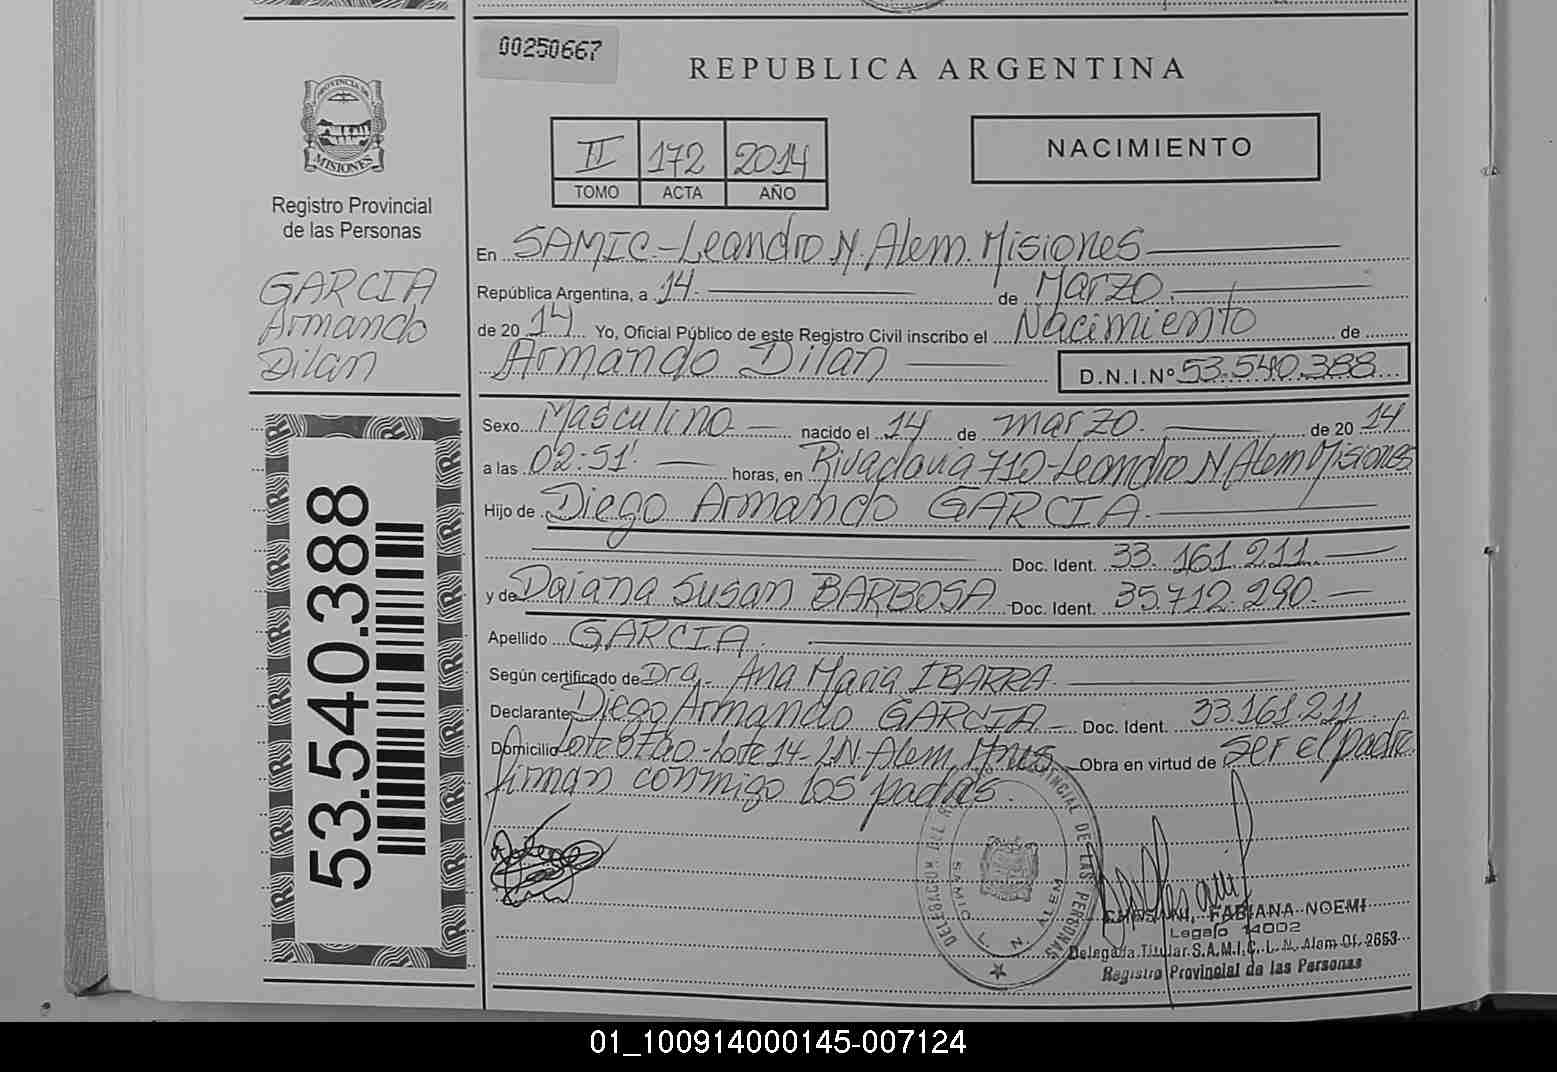 00250667
REPUBLICA ARGENTINA
PROVINCIA DE
MISIONES
Registro Provincial
de las Personas
II 172 2014
TOMO ACTA AÑO
NACIMIENTO
GARCIA
Armando
Dilan
En SAMIC-Leandro N. Alem. Misiones
República Argentina, a 14. de Marzo.
de 20 14 Yo, Oficial Público de este Registro Civil inscribo el Nacimiento de
Armando Dilan D.N.I.Nº 53.540.388
Sexo Masculino nacido el 14 de marzo. de 20 14
a las 02:51' horas, en Rivadavia 710-Leandro N Alem Misiones
Hijo de Diego Armando GARCIA.
Doc. Ident. 33.161.211.
y de Daiana Susan BARBOSA Doc. Ident. 35.712.290.
Apellido GARCIA.
Según certificado de Dra. Ana Maria IBARRA.
Declarante Diego Armando GARCIA Doc. Ident. 33.161.211
Domicilio Lote 14-LN. Alem, Mnes Obra en virtud de Ser el padre
firman conmigo los padres.
53.540.388
DELEGACION DEL PROVINCIAL DE LAS PERSONAS
SAMIC
L. N. ALEM
FABIANA NOEMI
Legajo 14002
Delegada Titular S.A.M.I.C. L. N. Alem Of. 2653
Registro Provincial de las Personas
01_100914000145-007124